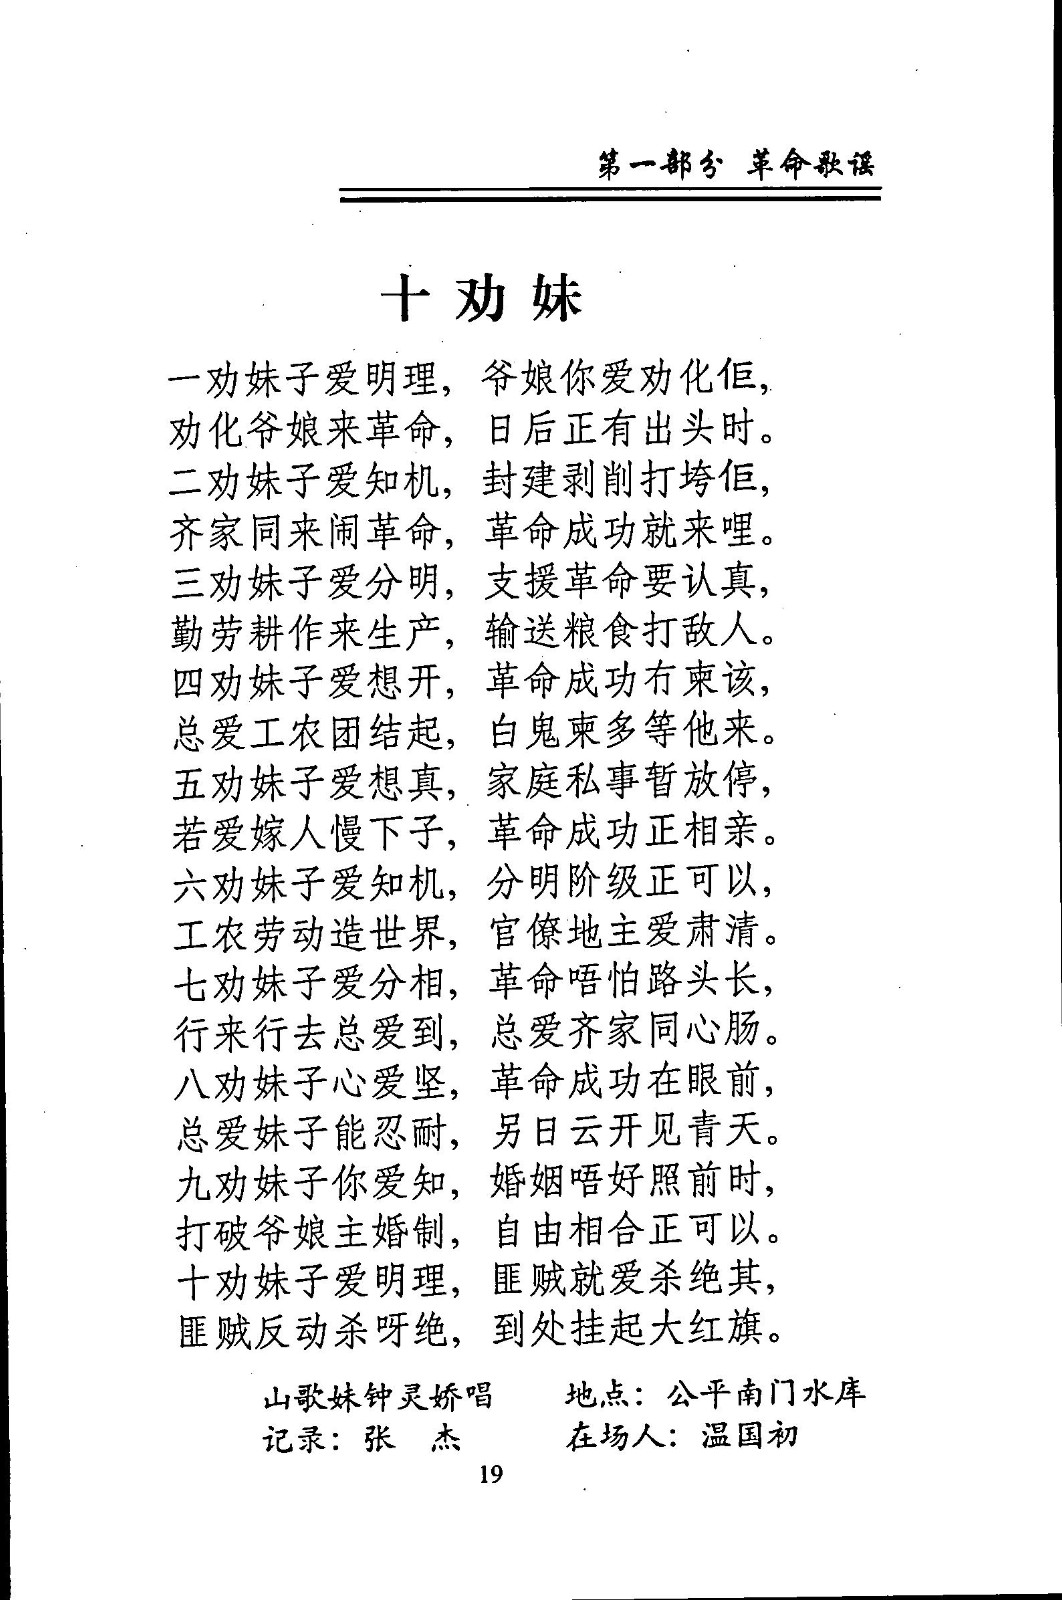 第一部分 革命歌谣
十劝妹
一劝妹子爱明理，爷娘你爱劝化佢，
劝化爷娘来革命，日后正有出头时。
二劝妹子爱知机，封建剥削打垮佢，
齐家同来闹革命，革命成功就来哩。
三劝妹子爱分明，支援革命要认真，
勤劳耕作来生产，输送粮食打敌人。
四劝妹子爱想开，革命成功冇柬该，
总爱工农团结起，白鬼柬多等他来。
五劝妹子爱想真，家庭私事暂放停，
若爱嫁人慢下子，革命成功正相亲。
六劝妹子爱知机，分明阶级正可以，
工农劳动造世界，官僚地主爱肃清。
七劝妹子爱分相，革命唔怕路头长，
行来行去总爱到，总爱齐家同心肠。
八劝妹子心爱坚，革命成功在眼前，
总爱妹子能忍耐，另日云开见青天。
九劝妹子你爱知，婚姻唔好照前时，
打破爷娘主婚制，自由相合正可以。
十劝妹子爱明理，匪贼就爱杀绝其，
匪贼反动杀呀绝，到处挂起大红旗。
山歌妹钟灵娇唱 地点：公平南门水库
记录：张 杰 在场人：温国初
19